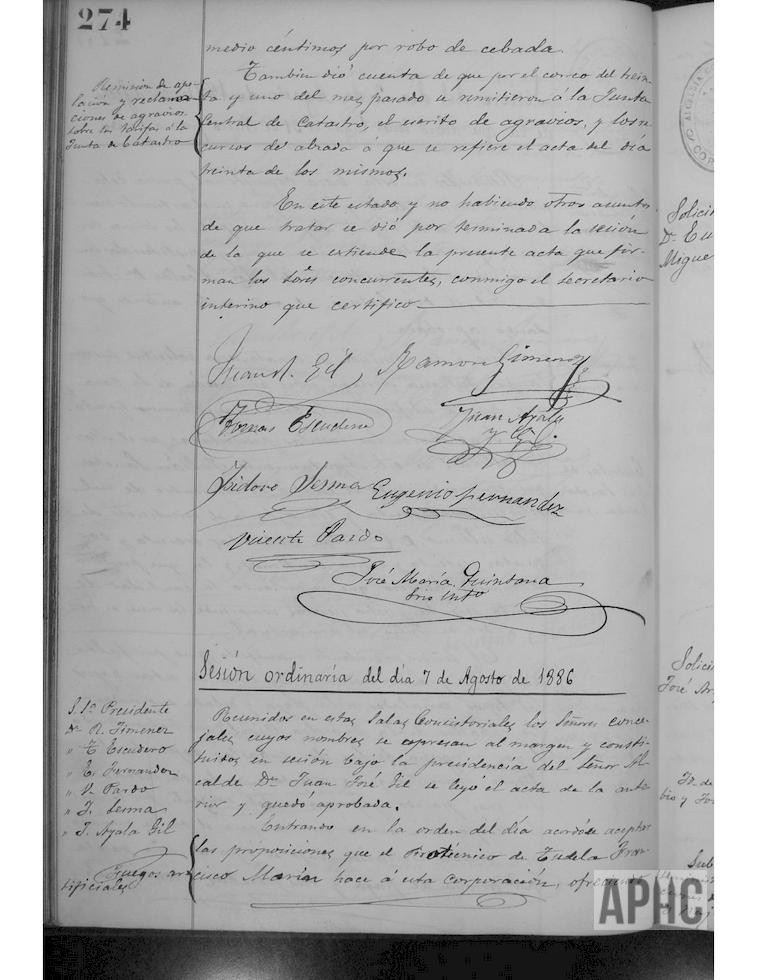 274
medio céntimos por robo de cebada.
Remisión de ape-
lación y reclama-
ciones de agravios
sobre las tarifas á la
Junta de Catastro
Tambien dió cuenta de que por el correo del trein-
ta y uno del mes pasado se remitieron á la Junta
Central de Catastro, el escrito de agravios, y los re
cursos de alzada á que se refiere el acta del dia
treinta de los mismos.
En este estado y no habiendo otros asuntos
de que tratar se dió por terminada la sesión
de la que se extiende la presente acta que fir-
man los Sores concurrentes, conmigo el secretario
interino que certifico
Juan J. Gil
Ramon Gimenez
Tomas Escudero
Juan Ayala
y Gil.
Isidoro Sesma
Eugenio Fernandez
Vicente Pardo
José María Quintana
Srio Into
Sesión ordinaria del día 7 de Agosto de 1886
S. Sa Presidente
Dn R. Jimenez
" T. Escudero
" E. Fernandez
" V. Pardo
" I. Sesma
" J. Ayala Gil
Reunidos en estas Salas Consistoriales los Señores conce-
jales cuyos nombres se expresan al margen y consti-
tuidos en sesión bajo la presidencia del Señor Al
calde Dn Juan José Gil se leyó el acta de la ante
rior y quedó aprobada.
Fuegos ar-
tificiales
Entrando en la orden del día acordóse aceptar
las proposiciones que el Pirotécnico de Tudela Fran
cisco Marín hace á esta Corporación, ofreciendo
Solici
Dn Eu
Migue
Solici
José Ar
Sub
APHC